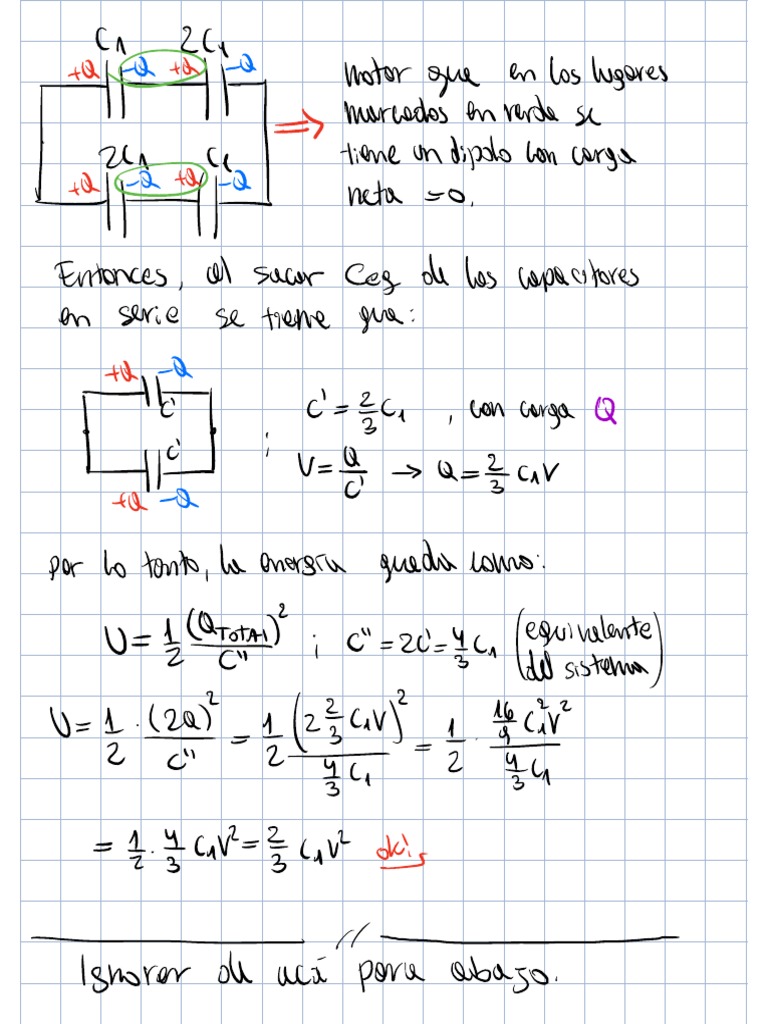 C1 2C1
+Q -Q +Q -Q
2C1 C1
+Q -Q +Q -Q
⇒ Notar que en los lugares
marcados en verde se
tiene un dipolo con carga
neta =0.
Entonces, al sacar Ceq de los capacitores
en serie se tiene que:
+Q -Q
C'
C'
+Q -Q
; C' = 2/3 C1 , con carga Q
V = Q/C' → Q = 2/3 C1V
por lo tanto, la energía queda como:
U = 1/2 (QTOTAL)²/C'' ; C'' = 2C' = 4/3 C1 (equivalente
del sistema)
U = 1/2 · (2Q)²/C'' = 1/2 (2 2/3 C1V)²/(4/3 C1) = 1/2 · (16/9 C1²V²)/(4/3 C1)
= 1/2 · 4/3 C1V² = 2/3 C1V² okis
//
Ignorar de acá para abajo.